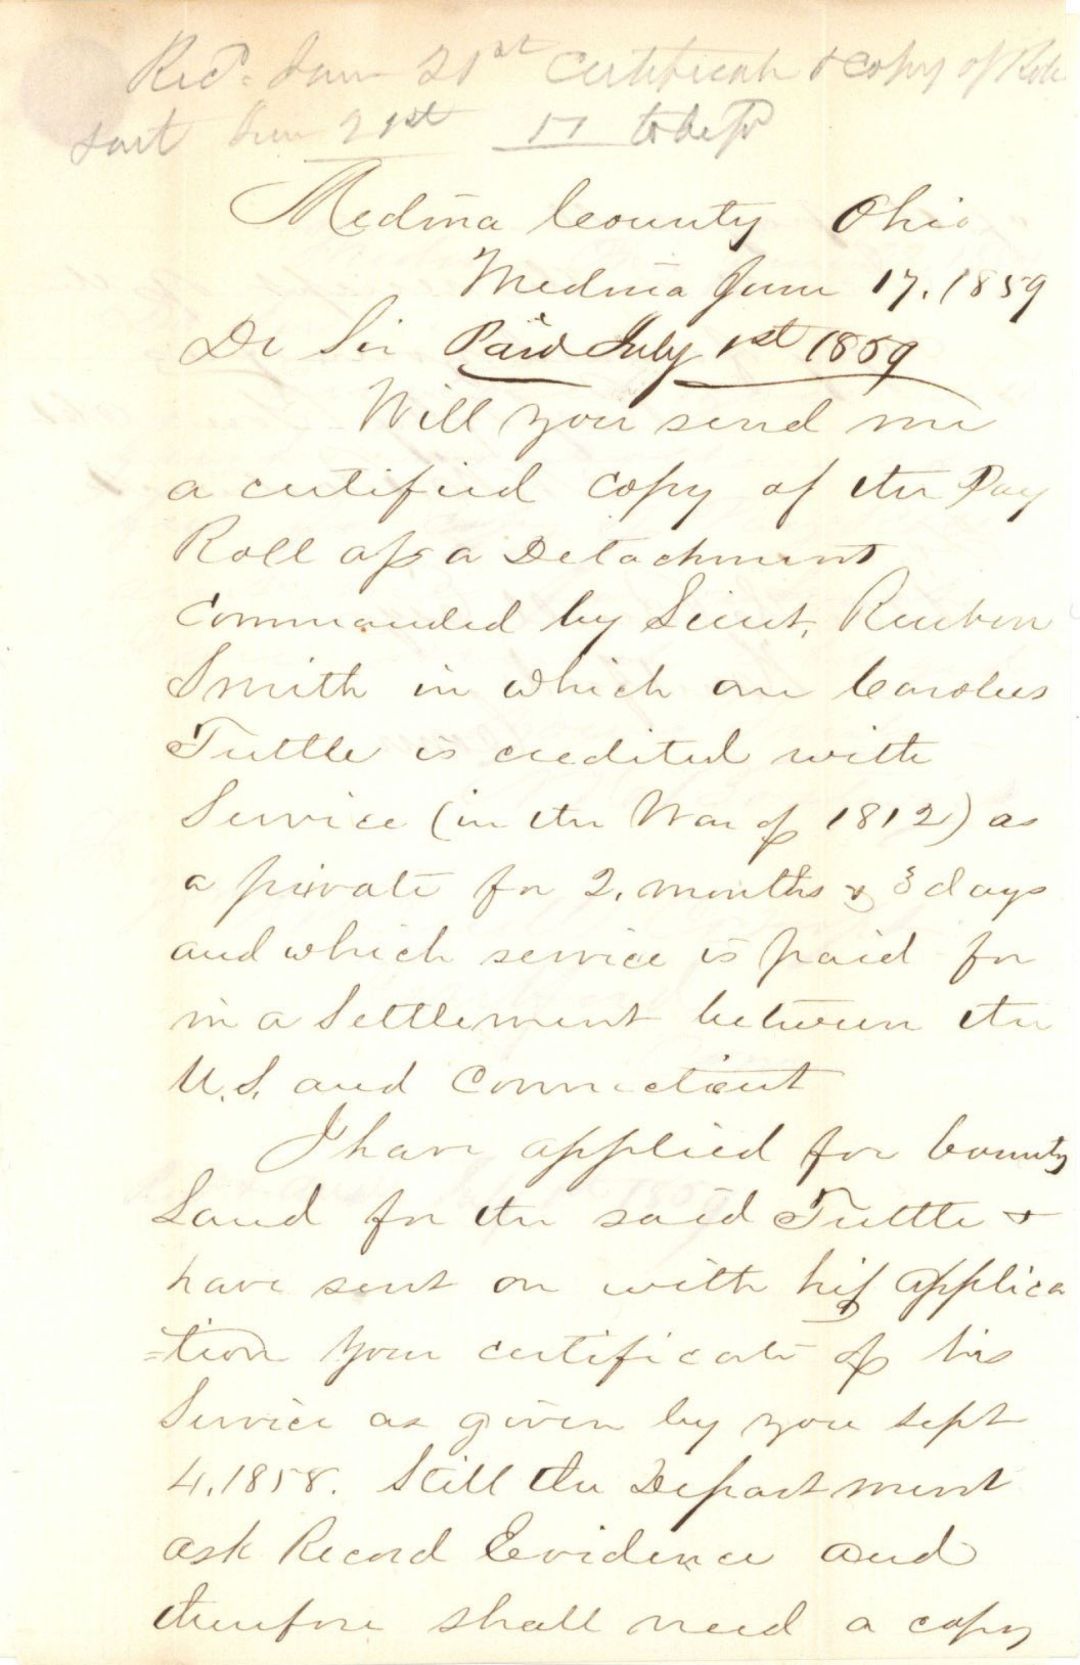 Recd. June 21st Certificate & copy of Role
sent June 21st
Medina County Ohio
Medina June 17. 1859
Dr Sir Paid July 1st 1859
Will you send me
a certified copy of the Pay
Roll of a Detachment
Commanded by Lieut. Reuben
Smith in which one Carolus
Tuttle is credited with
Service (in the War of 1812) as
a private for 2. months & 3 days
and which service is paid for
in a Settlement between the
U.S. and Connecticut
I have applied for bounty
Land for the said Tuttle &
have sent on with his applica
=tion your certificate of his
Service as given by you Sept
4. 1858. Still the Department
ask Record Evidence and
therefore shall need a copy